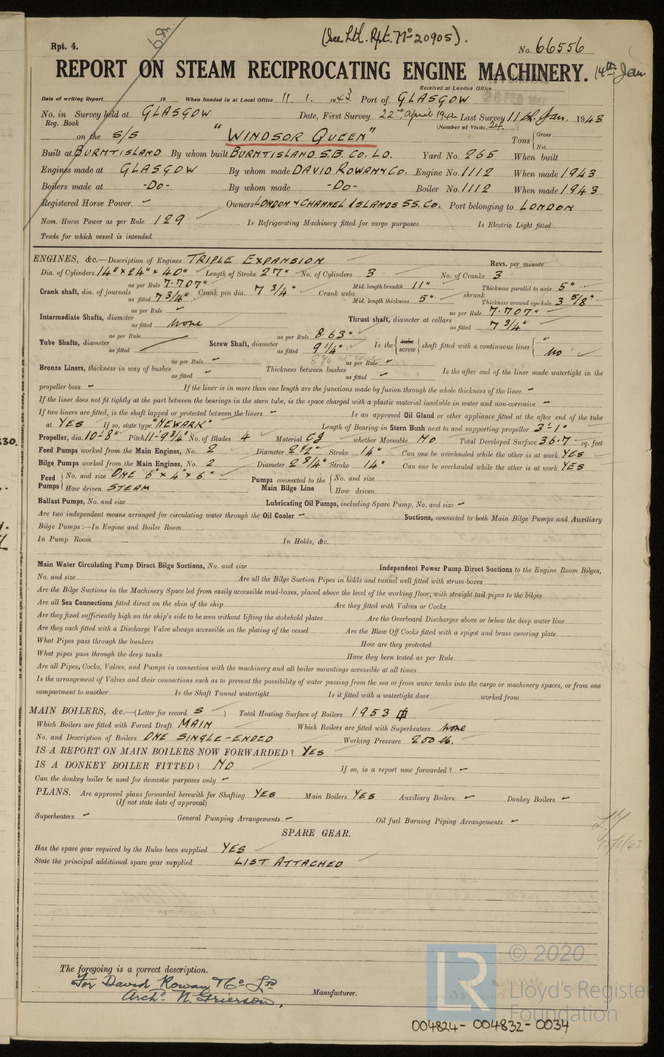 (See Lth. Rpt. No 20905).
Rpt. 4.
No. 66556
REPORT ON STEAM RECIPROCATING ENGINE MACHINERY. 14th Jan
Received at London Office
Date of writing Report 19 When handed in at Local Office 11. 1. 1943 Port of GLASGOW
No. in Survey held at GLASGOW Date, First Survey 22nd April 1942 Last Survey 11th Jan. 1943
Reg. Book (Number of Visits 24)
on the S/S "WINDSOR QUEEN" Tons { Gross Net
Built at BURNTISLAND By whom built BURNTISLAND S.B. CO. LD. Yard No. 265 When built
Engines made at GLASGOW By whom made DAVID ROWAN & CO. Engine No. 1112 When made 1943
Boilers made at -DO- By whom made -DO- Boiler No. 1112 When made 1943
Registered Horse Power Owners LONDON & CHANNEL ISLANDS SS. CO. Port belonging to LONDON
Nom. Horse Power as per Rule 129 Is Refrigerating Machinery fitted for cargo purposes Is Electric Light fitted
Trade for which vessel is intended
ENGINES, &c.—Description of Engines TRIPLE EXPANSION Revs. per minute
Dia. of Cylinders 14" x 24" x 40" Length of Stroke 27" No. of Cylinders 3 No. of Cranks 3
Crank shaft, dia. of journals as per Rule 7.707" as fitted 7 3/4" Crank pin dia. 7 3/4" Crank webs Mid. length breadth 11" Mid. length thickness 5" shrunk Thickness parallel to axis 5" Thickness around eye-hole 3 5/8"
Intermediate Shafts, diameter as per Rule as fitted None Thrust shaft, diameter at collars as per Rule 7.707" as fitted 7 3/4"
Tube Shafts, diameter as per Rule as fitted Screw Shaft, diameter as per Rule 8.63" as fitted 9 1/4" Is the { tube screw } shaft fitted with a continuous liner { No
Bronze Liners, thickness in way of bushes as per Rule as fitted Thickness between bushes as per Rule as fitted Is the after end of the liner made watertight in the
propeller boss If the liner is in more than one length are the junctions made by fusion through the whole thickness of the liner
If the liner does not fit tightly at the part between the bearings in the stern tube, is the space charged with a plastic material insoluble in water and non-corrosive
If two liners are fitted, is the shaft lapped or protected between the liners Is an approved Oil Gland or other appliance fitted at the after end of the tube
at YES If so, state type "NEWARK" Length of Bearing in Stern Bush next to and supporting propeller 3'-1"
Propeller, dia. 10-8" Pitch 11-9 3/4" No. of Blades 4 Material C.I. whether Moveable NO Total Developed Surface 36.7 sq. feet
Feed Pumps worked from the Main Engines, No. 2 Diameter 2 1/2" Stroke 14" Can one be overhauled while the other is at work YES
Bilge Pumps worked from the Main Engines, No. 2 Diameter 2 3/4" Stroke 14" Can one be overhauled while the other is at work YES
Feed Pumps { No. and size ONE 6" x 4" x 6" How driven STEAM Pumps connected to the Main Bilge Line { No. and size How driven
Ballast Pumps, No. and size Lubricating Oil Pumps, including Spare Pump, No. and size
Are two independent means arranged for circulating water through the Oil Cooler Suctions, connected to both Main Bilge Pumps and Auxiliary
Bilge Pumps :—In Engine and Boiler Room
In Pump Room In Holds, &c.
Main Water Circulating Pump Direct Bilge Suctions, No. and size Independent Power Pump Direct Suctions to the Engine Room Bilges,
No. and size Are all the Bilge Suction Pipes in holds and tunnel well fitted with strum-boxes
Are the Bilge Suctions in the Machinery Space led from easily accessible mud-boxes, placed above the level of the working floor, with straight tail pipes to the bilges
Are all Sea Connections fitted direct on the skin of the ship Are they fitted with Valves or Cocks
Are they fixed sufficiently high on the ship's side to be seen without lifting the stokehold plates Are the Overboard Discharges above or below the deep water line
Are they each fitted with a Discharge Valve always accessible on the plating of the vessel Are the Blow Off Cocks fitted with a spigot and brass covering plate
What Pipes pass through the bunkers How are they protected
What pipes pass through the deep tanks Have they been tested as per Rule
Are all Pipes, Cocks, Valves, and Pumps in connection with the machinery and all boiler mountings accessible at all times
Is the arrangement of Valves and their connections such as to prevent the possibility of water passing from the sea or from water tanks into the cargo or machinery spaces, or from one
compartment to another Is the Shaft Tunnel watertight Is it fitted with a watertight door worked from
MAIN BOILERS, &c.—(Letter for record S) Total Heating Surface of Boilers 1953
Which Boilers are fitted with Forced Draft MAIN Which Boilers are fitted with Superheaters None
No. and Description of Boilers ONE SINGLE-ENDED Working Pressure 200 lb.
IS A REPORT ON MAIN BOILERS NOW FORWARDED? YES
IS A DONKEY BOILER FITTED? NO If so, is a report now forwarded?
Can the donkey boiler be used for domestic purposes only
PLANS. Are approved plans forwarded herewith for Shafting YES Main Boilers YES Auxiliary Boilers Donkey Boilers
(If not state date of approval)
Superheaters General Pumping Arrangements Oil fuel Burning Piping Arrangements
SPARE GEAR.
Has the spare gear required by the Rules been supplied YES
State the principal additional spare gear supplied LIST ATTACHED
The foregoing is a correct description.
For David Rowan & Co Ld
Archd. N. Grierson, Manufacturer.
© 2020
LR
Lloyd's Register
Foundation
004824-004832-0034